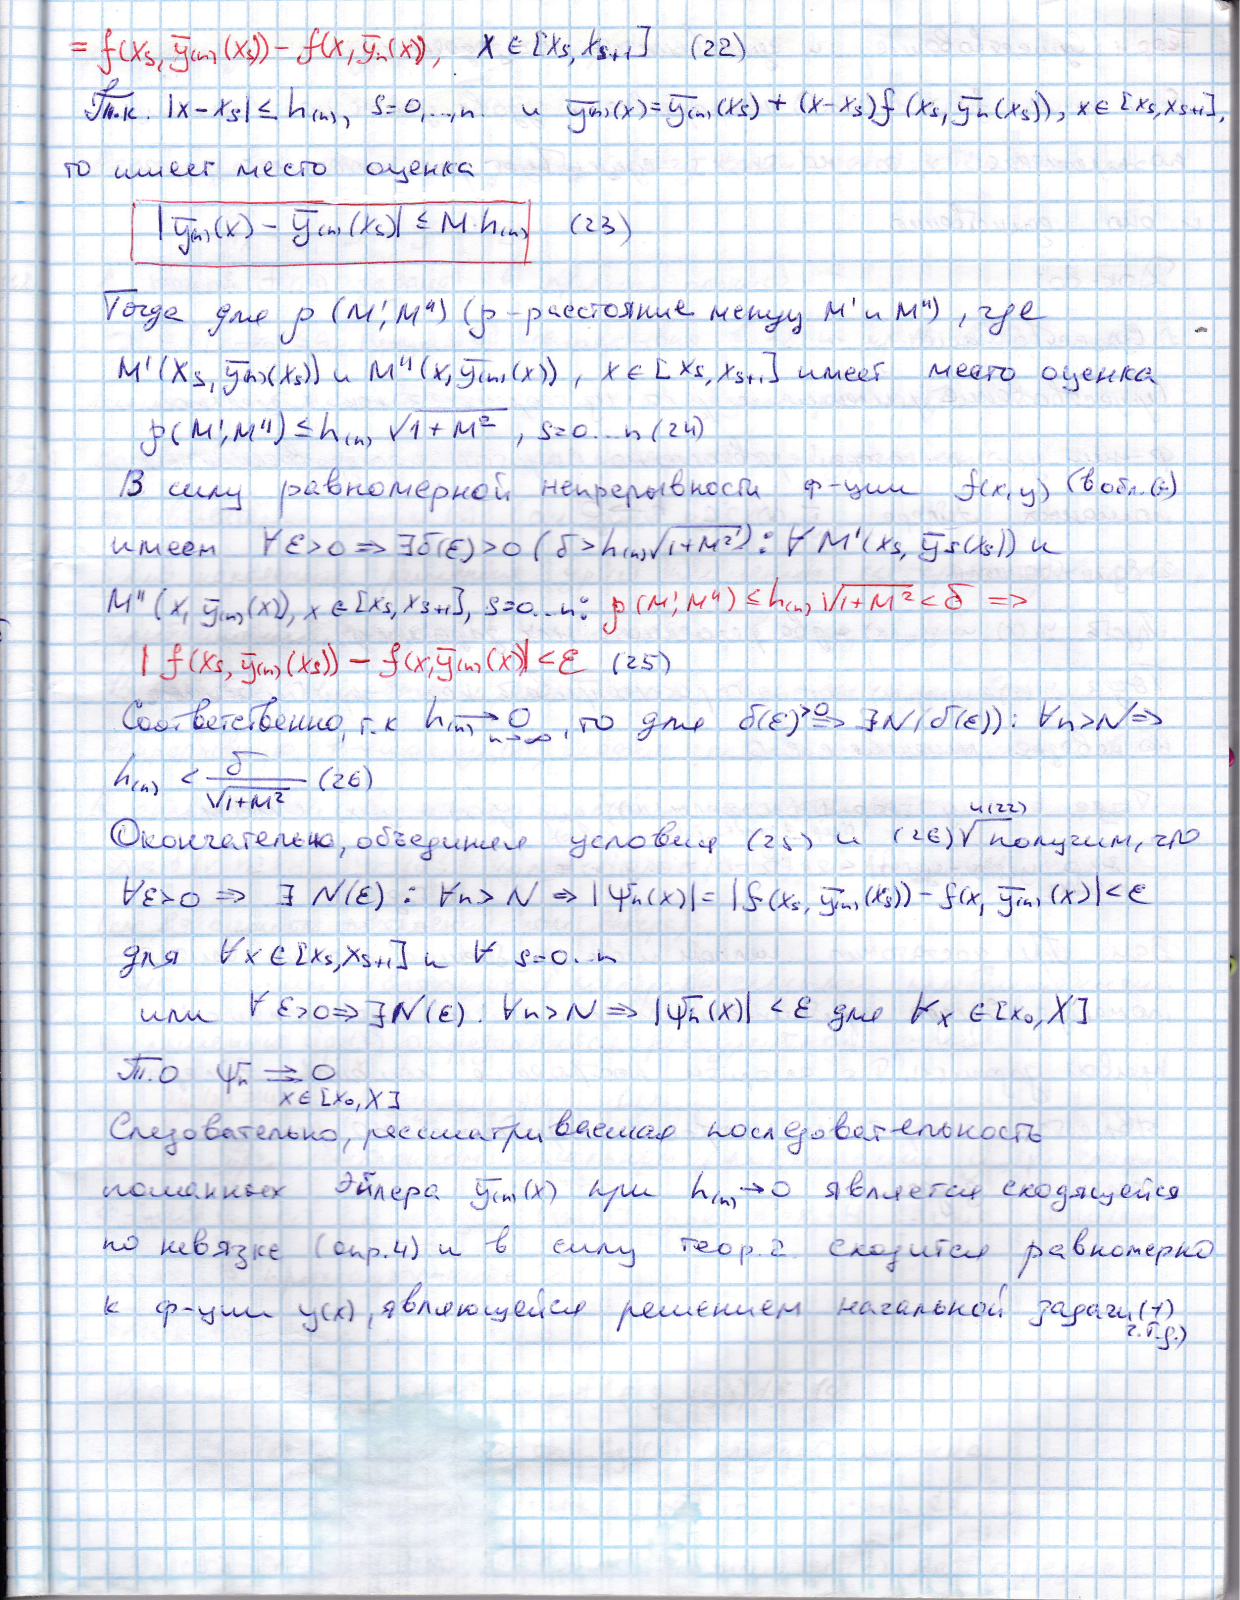 = f(x_s, ȳ_(n)(x_s)) − f(x, ȳ_n(x)), x ∈ [x_s, x_{s+1}] (22)
Т.к. |x − x_s| ≤ h_(n), s=0,...,n. и ȳ_(n)(x) = ȳ_(n)(x_s) + (x−x_s) f(x_s, ȳ_n(x_s)), x ∈ [x_s, x_{s+1}],
то имеет место оценка
|ȳ_(n)(x) − ȳ_(n)(x_s)| ≤ M·h_(n) (23)
Тогда для ρ(M', M'') (ρ-расстояние между M' и M''), где
M'(x_s, ȳ_(n)(x_s)) и M''(x, ȳ_(n)(x)), x ∈ [x_s, x_{s+1}] имеет место оценка
ρ(M', M'') ≤ h_(n) √(1+M²), s=0...n (24)
В силу равномерной непрерывности ф-ции f(x,y) (в обл.
имеем ∀ε>0 ⇒ ∃δ(ε)>0 (δ > h_(n)√(1+M²)): ∀ M'(x_s, ȳ_s(x_s)) и
M''(x, ȳ_(n)(x)), x ∈ [x_s, x_{s+1}], s=0...n: ρ(M', M'') ≤ h_(n) √(1+M²) < δ ⇒
|f(x_s, ȳ_(n)(x_s)) − f(x, ȳ_(n)(x)| < ε (25)
Соответственно, т.к h_(n) →_{n→∞} 0, то для δ(ε)>0 ⇒ ∃N(δ(ε)): ∀n>N ⇒
h_(n) < δ/√(1+M²) (26)
Окончательно, объединяя условия (25) и (26) √ и (22) получим, что
∀ε>0 ⇒ ∃ N(ε): ∀n>N ⇒ |ψ_n(x)| = |f(x_s, ȳ_(n)(x_s)) − f(x, ȳ_(n)(x)| < ε
для ∀x ∈ [x_s, x_{s+1}] и ∀ s=0...n
или ∀ε>0 ⇒ ∃N(ε): ∀n>N ⇒ |ψ_n(x)| < ε для ∀x ∈ [x_0, X]
Т.о ψ_n ⇉ 0
x ∈ [x_0, X]
Следовательно, рассматриваемая последовательность
ломанных Эйлера ȳ_(n)(x) при h_(n) → 0 является сходящейся
по невязке (опр.4) и в силу теор.2 сходится равномерно
к ф-ции y(x), являющейся решением начальной задачи (1)
ч.т.д.)